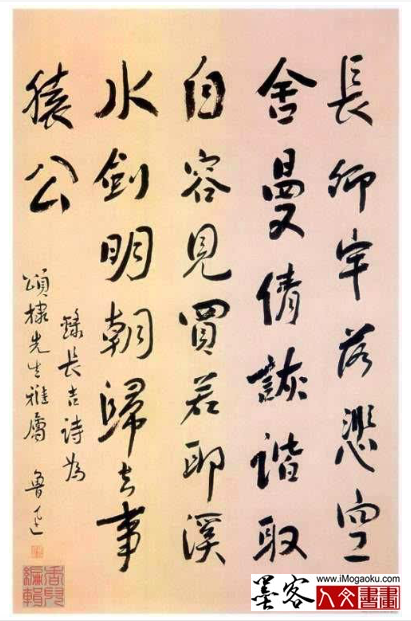 長卿牢落悲空
舍曼倩詼諧取
自容見買若耶溪
水劍明朝歸去事
猿公
錄長吉詩為
頌棣先生雅屬
魯迅
www.iMogaoku.com
墨客人文書畫